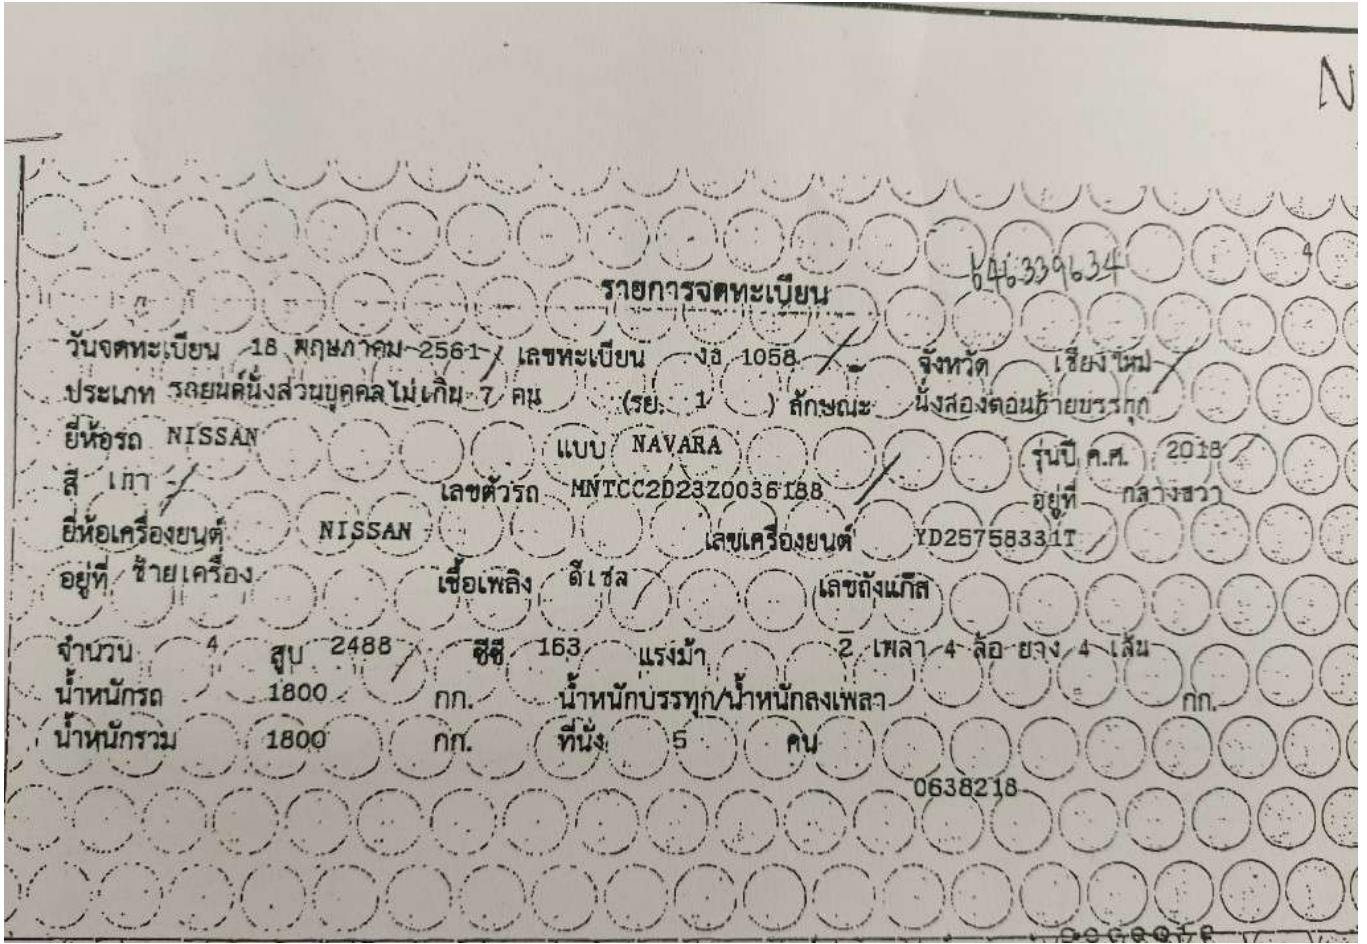 N
646339634
4
รายการจดทะเบียน
วันจดทะเบียน 18 พฤษภาคม 2561 เลขทะเบียน 1058 จังหวัด เชียงใหม่
ประเภท รถยนต์นั่งส่วนบุคคลไม่เกิน 7 คน (รย. 1 ) ลักษณะ นั่งสองตอนท้ายบรรทุก
ยี่ห้อรถ NISSAN แบบ NAVARA รุ่นปี ค.ศ. 2018
สี เทา เลขตัวรถ MNTCC2D23Z0036188 อยู่ที่ กลางขวา
ยี่ห้อเครื่องยนต์ NISSAN เลขเครื่องยนต์ YD25758331T
อยู่ที่ ซ้ายเครื่อง เชื้อเพลิง ดีเซล เลขถังแก๊ส
จำนวน 4 สูบ 2488 ซีซี 163 แรงม้า 2 เพลา 4 ล้อ ยาง 4 เส้น
น้ำหนักรถ 1800 กก. น้ำหนักบรรทุก/น้ำหนักลงเพลา กก.
น้ำหนักรวม 1800 กก. ที่นั่ง 5 คน
0638218